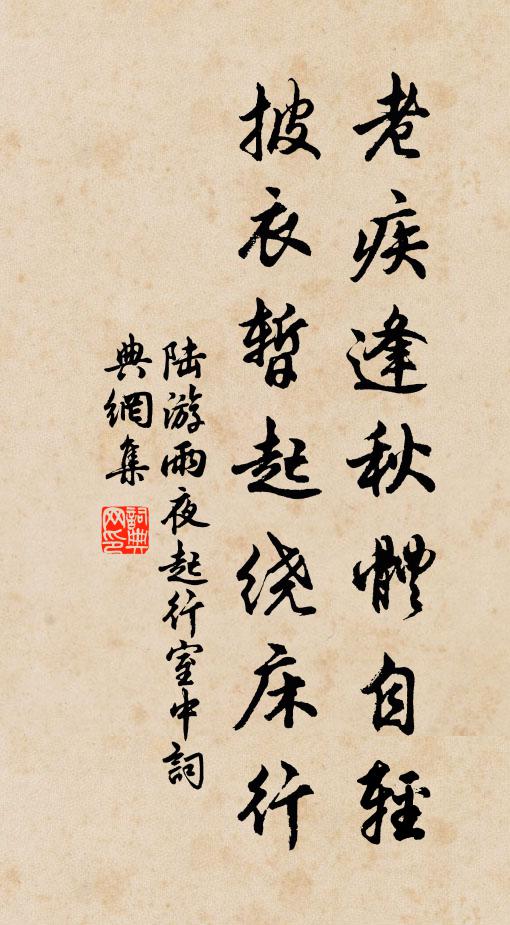 老疾逢秋體自輕
披衣暫起绕床行
陆游雨夜起行室中詞
典網集
詞典網印